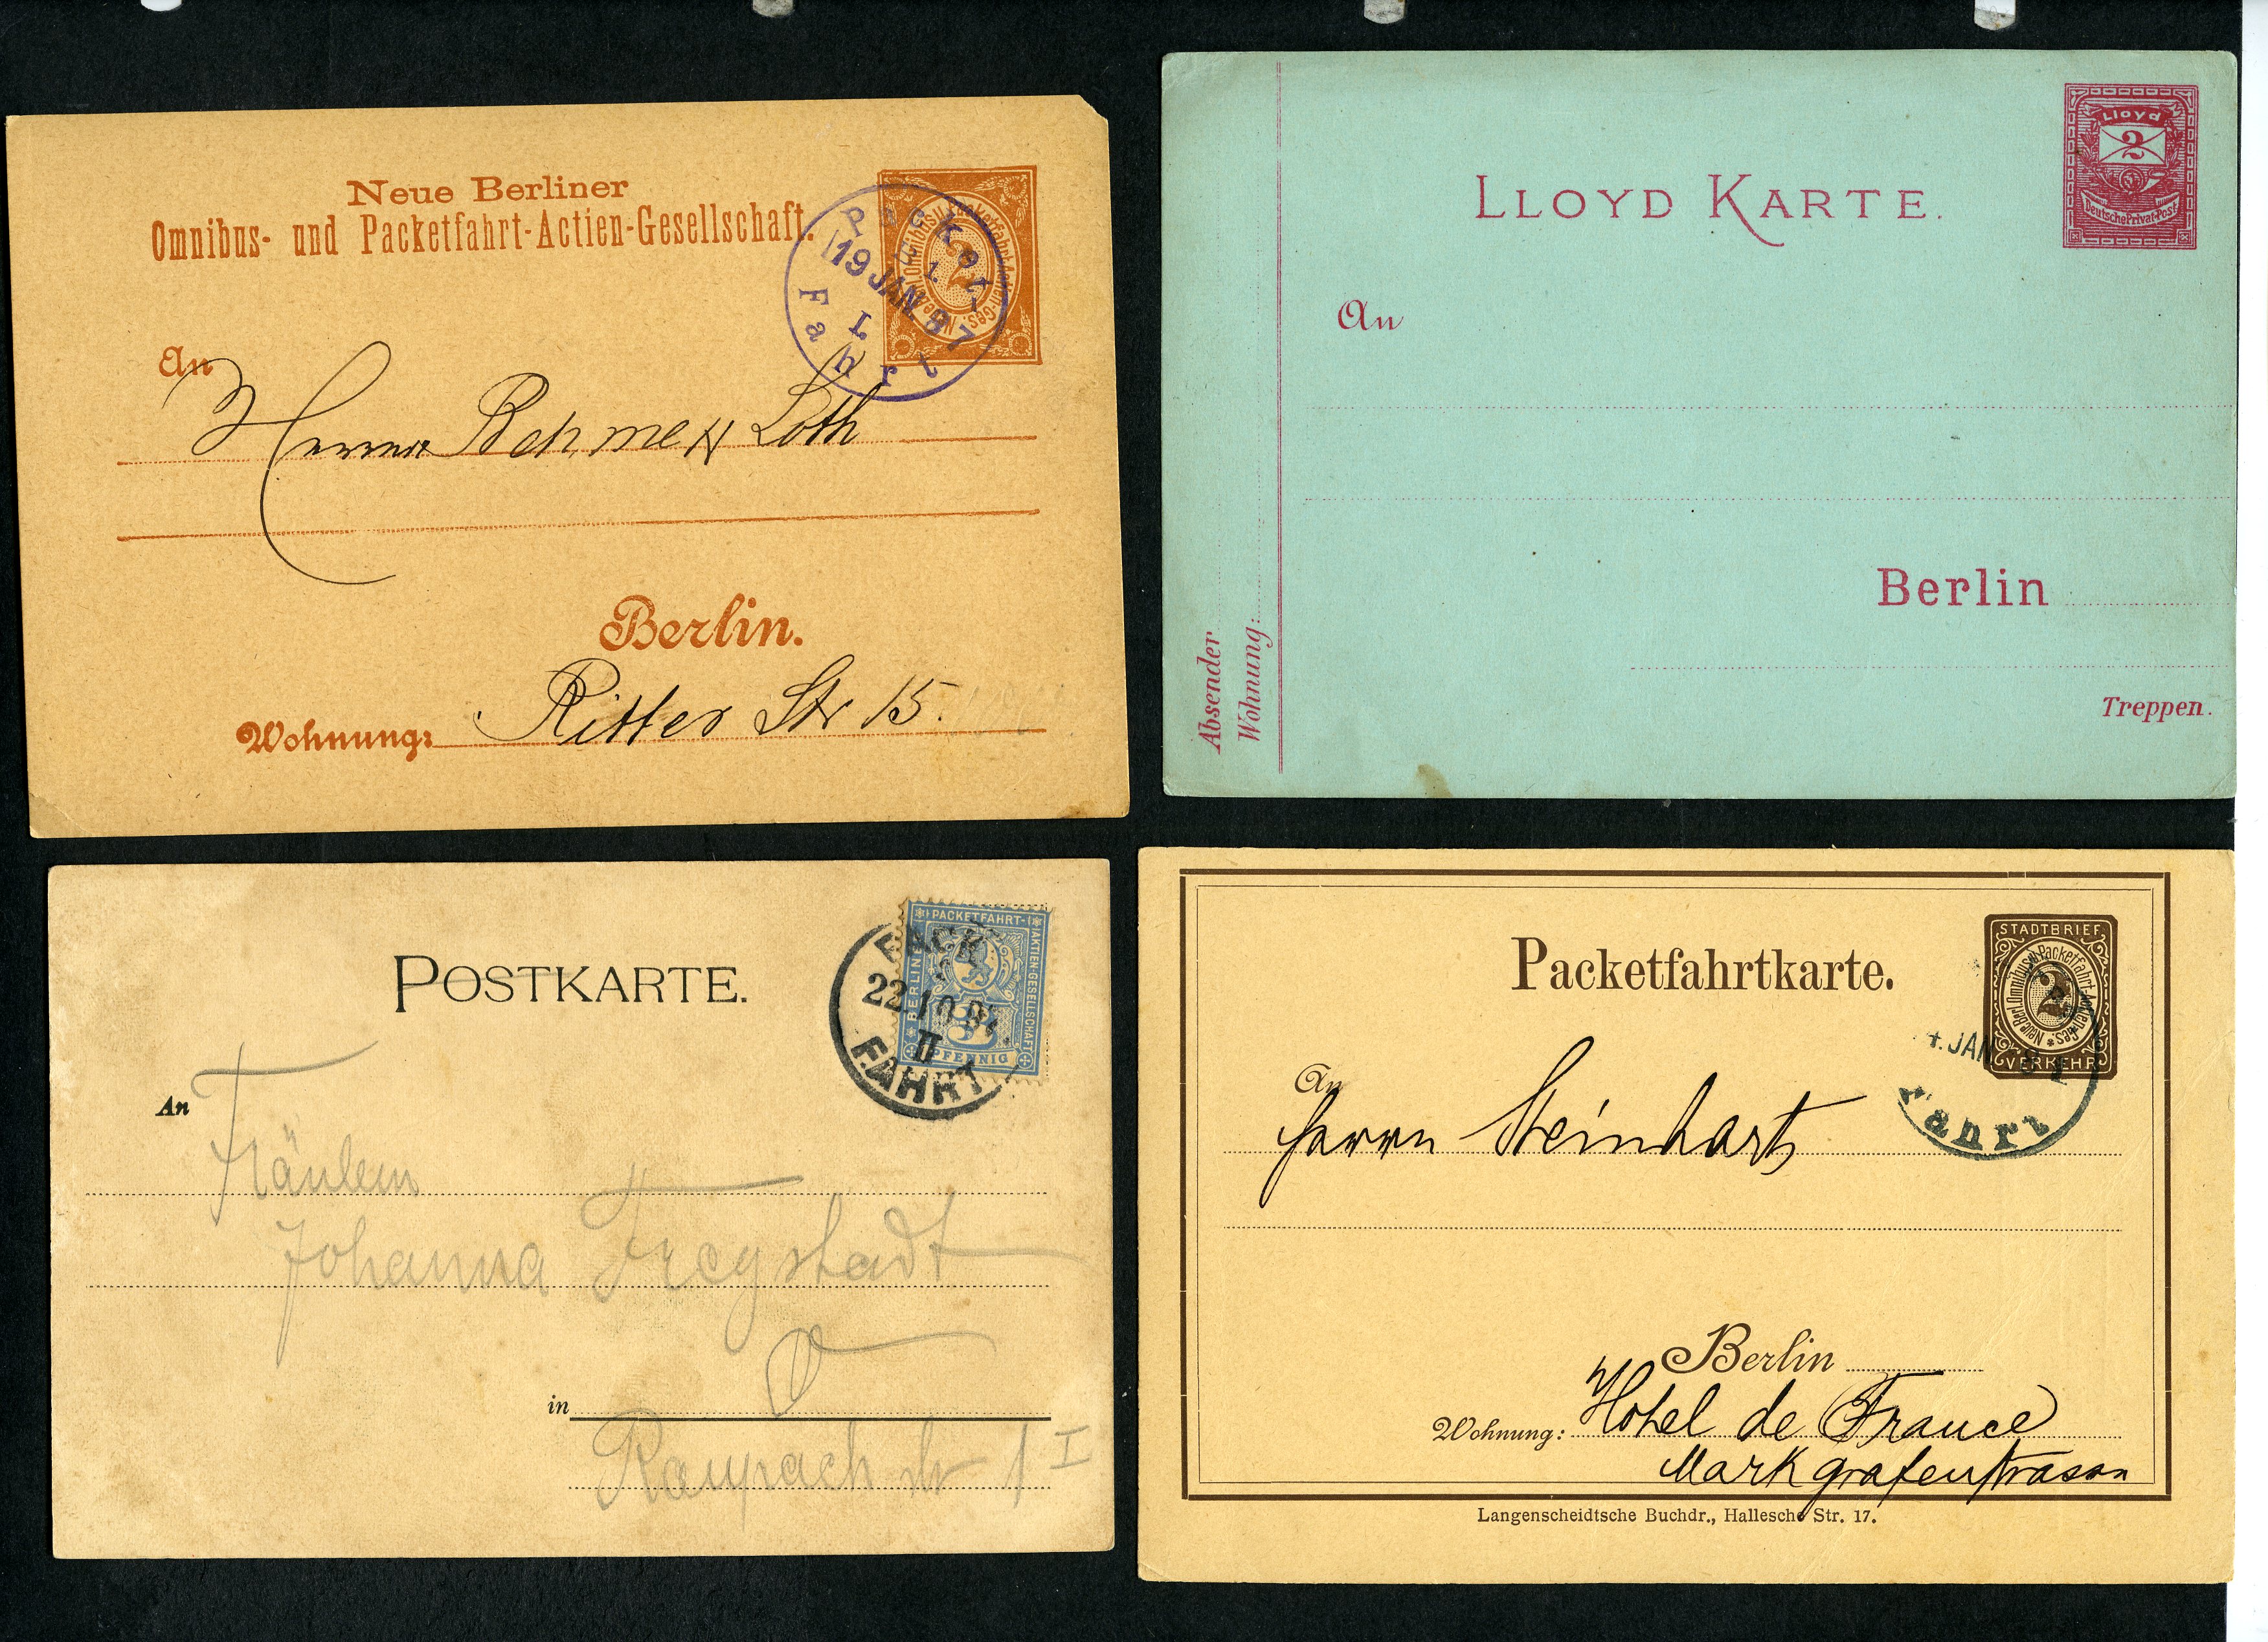 Neue Berliner
Omnibus- und Packetfahrt-Actien-Gesellschaft.
Neue Berl. Omnibus u. Packetfahrt-Actien-Ges.
2
Packet-
19 JAN. 87
I.
Fahrt
An
Herren Behme & Loth
Berlin.
Wohnung: Ritter Str 15.
LLOYD KARTE.
Lloyd
2
Deutsche Privat-Post
An
Berlin
Treppen.
Absender
Wohnung:
POSTKARTE.
BERLINER PACKETFAHRT-AKTIEN-GESELLSCHAFT
3
PFENNIG
PACKET
22.10.
II
FAHRT
An
Fräulein
Johanna
in
Raupach str 1 I
Packetfahrtkarte.
STADTBRIEF-
Neue Berl. Omnibus u. Packetfahrt-Actien-Ges.
2
VERKEHR
JAN
Fahrt
An
Herrn Steinhart
Berlin
Wohnung: Hotel de France
Markgrafenstrasse
Langenscheidtsche Buchdr., Hallesche Str. 17.